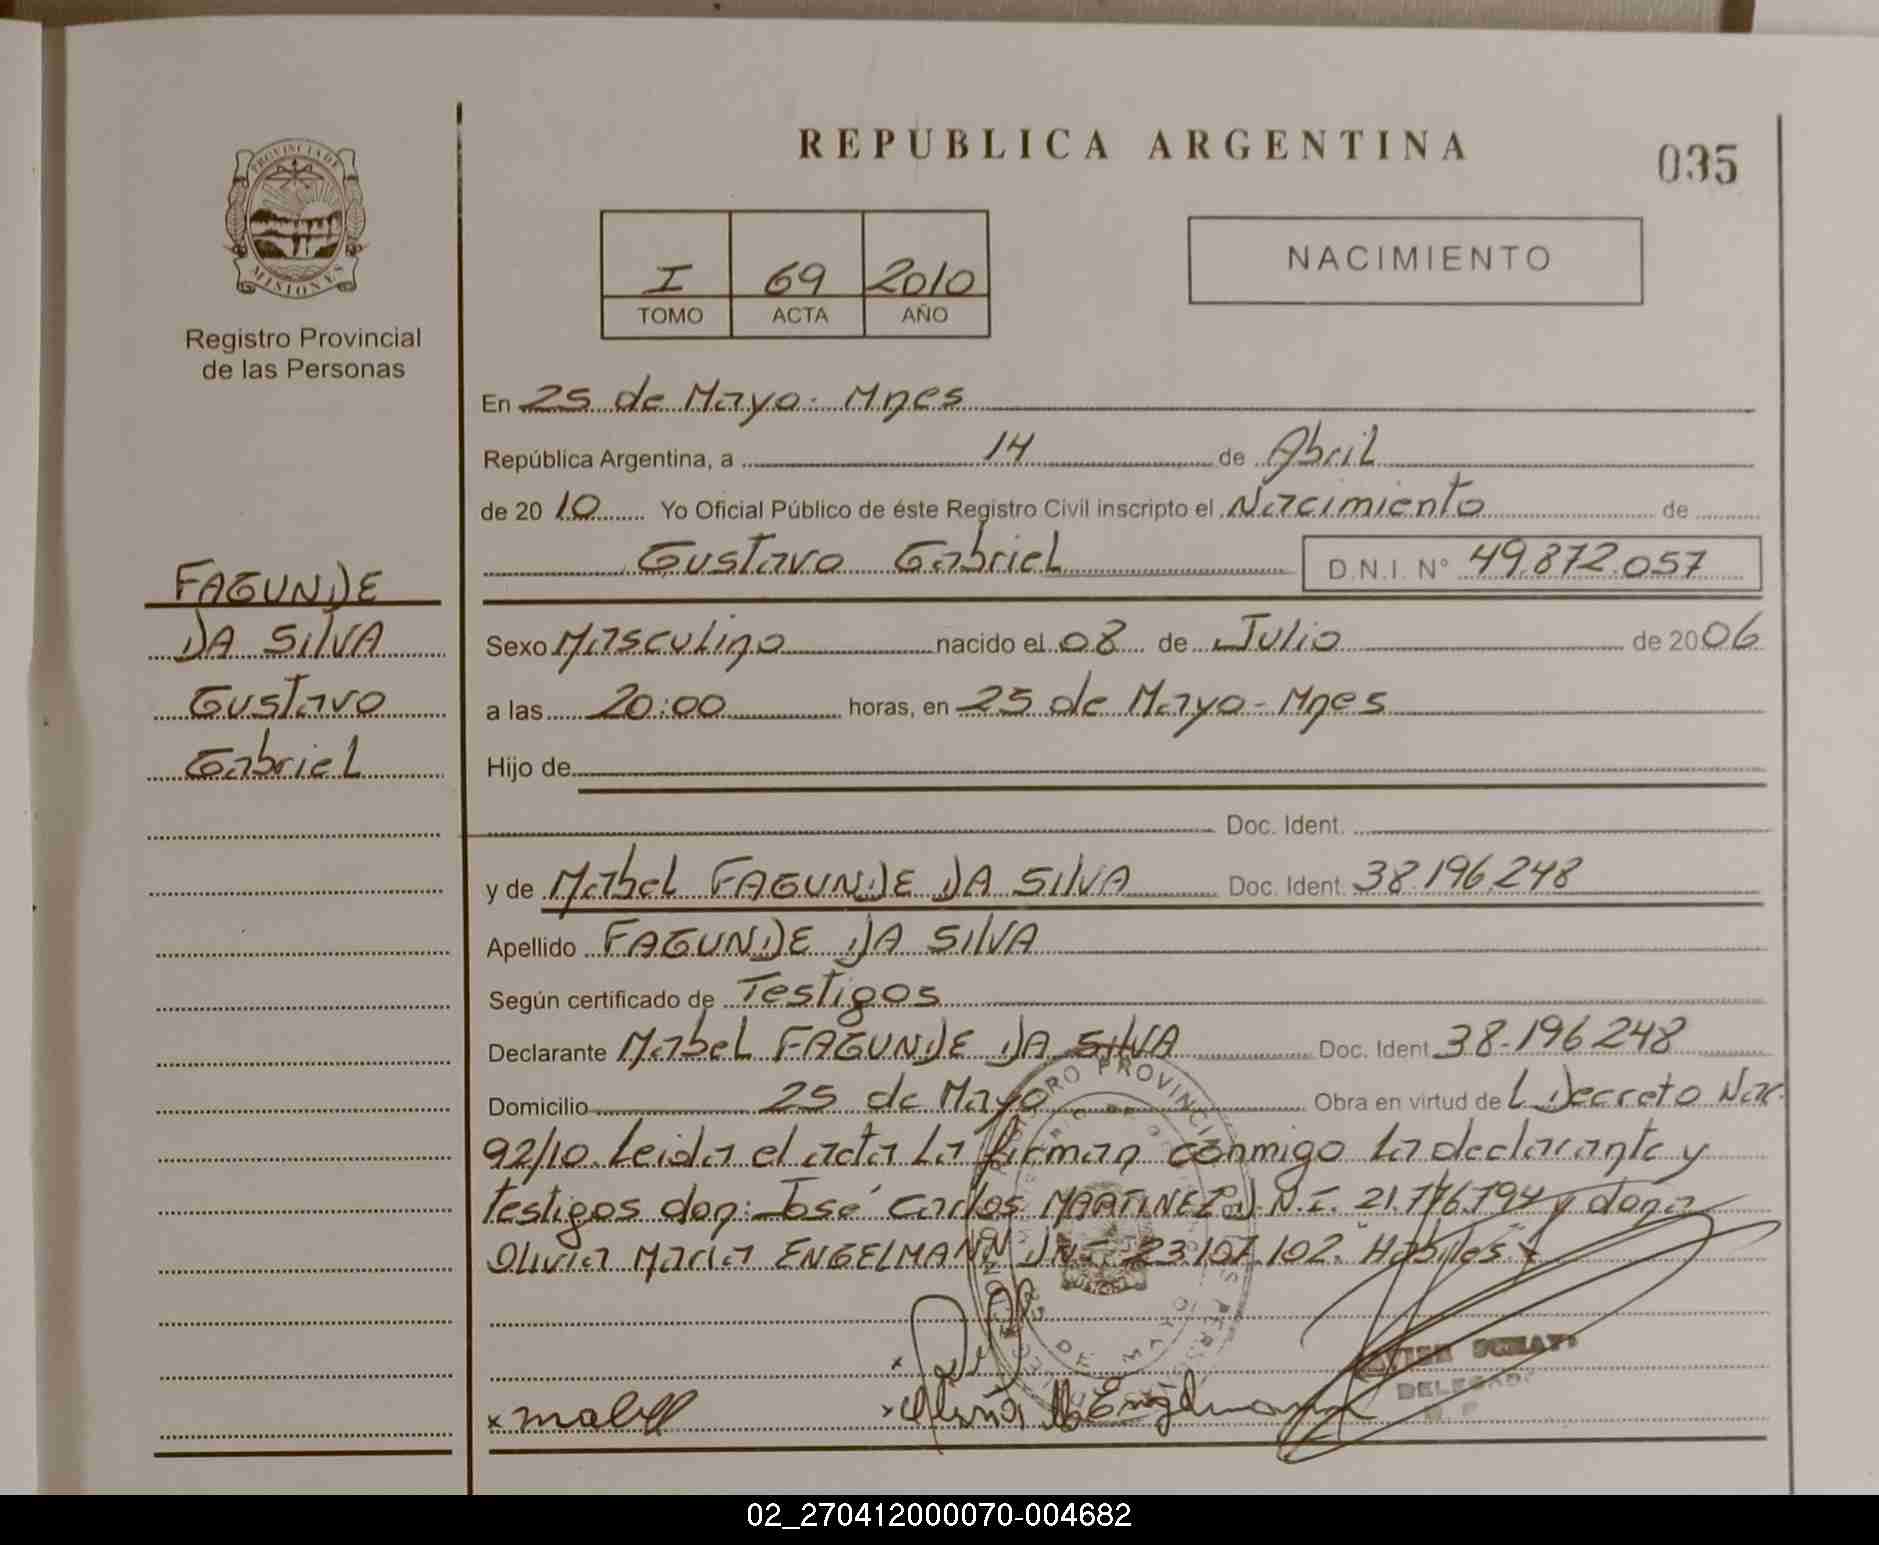 REPUBLICA ARGENTINA
035
PROVINCIA DE
MISIONES
Registro Provincial
de las Personas
I 69 2010
TOMO ACTA AÑO
NACIMIENTO
En 25 de Mayo. Mnes
República Argentina, a 14 de Abril
de 20 10 Yo Oficial Público de éste Registro Civil inscripto el Nacimiento de
Gustavo Gabriel D.N.I. Nº 49.872.057
FAGUNDE
DA SILVA
Gustavo
Gabriel
Sexo Masculino nacido el 08 de Julio de 2006
a las 20:00 horas, en 25 de Mayo - Mnes
Hijo de
Doc. Ident.
y de Mabel FAGUNDE DA SILVA Doc. Ident. 38.196.248
Apellido FAGUNDE DA SILVA
Según certificado de Testigos
Declarante Mabel FAGUNDE DA SILVA Doc. Ident 38.196248
Domicilio 25 de Mayo Obra en virtud de L Decreto Nac.
92/10. Leida el acta La firman conmigo La declarante y
testigos don: José Carlos MARTINEZ D.N.I. 21.776.794 y doña
Olivia Maria ENGELMANN DNI 23.107.102. Habiles
REGISTRO PROVINCIAL
DELEGADO
02_270412000070-004682